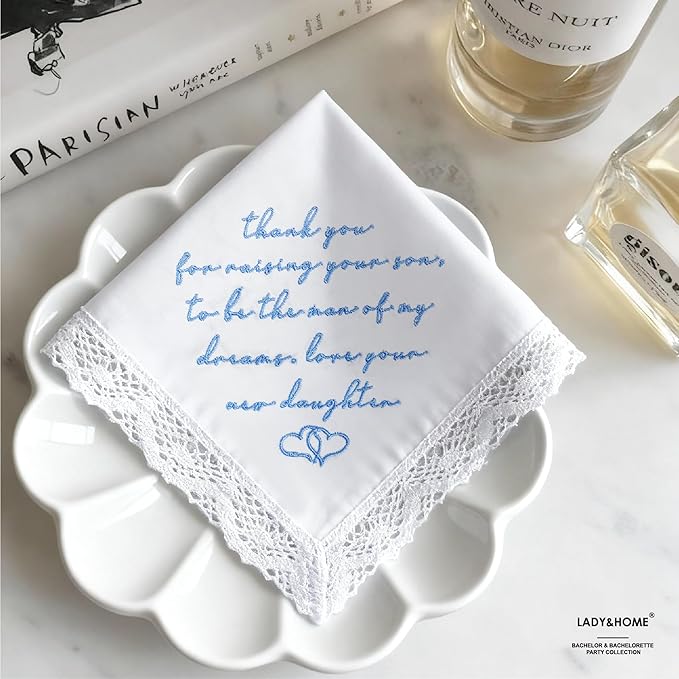 PARISIAN WHEREVER
YOU ARE
RE NUIT
CHRISTIAN DIOR
PARIS
thank you
for raising your son,
to be the man of my
dreams. love your
new daughter
LADY&HOME®
BACHELOR & BACHELORETTE
PARTY COLLECTION